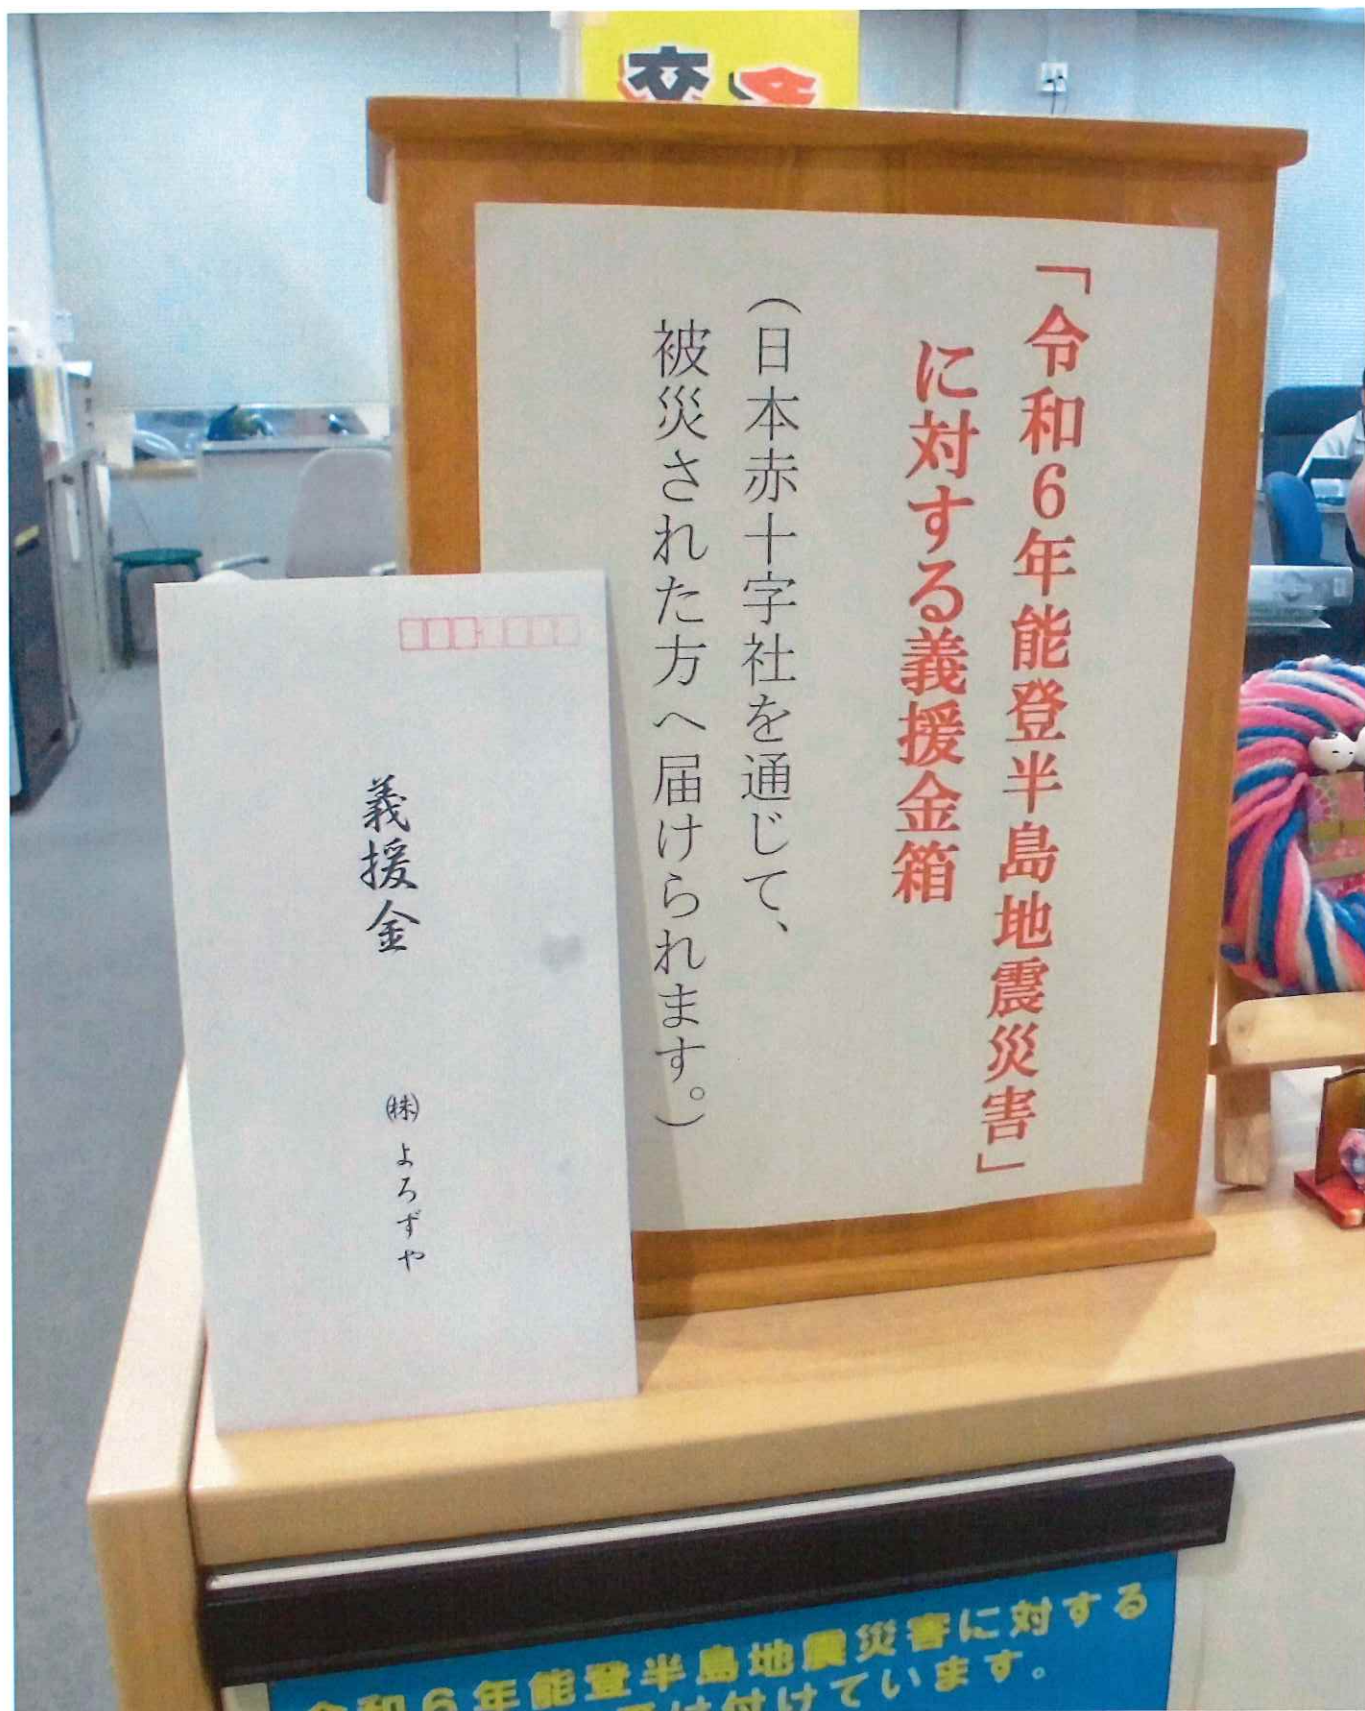 「令和6年能登半島地震災害」
に対する義援金箱
（日本赤十字社を通じて、
被災された方へ届けられます。）
義援金
㈱よろずや
令和6年能登半島地震災害に対する
け付けています。